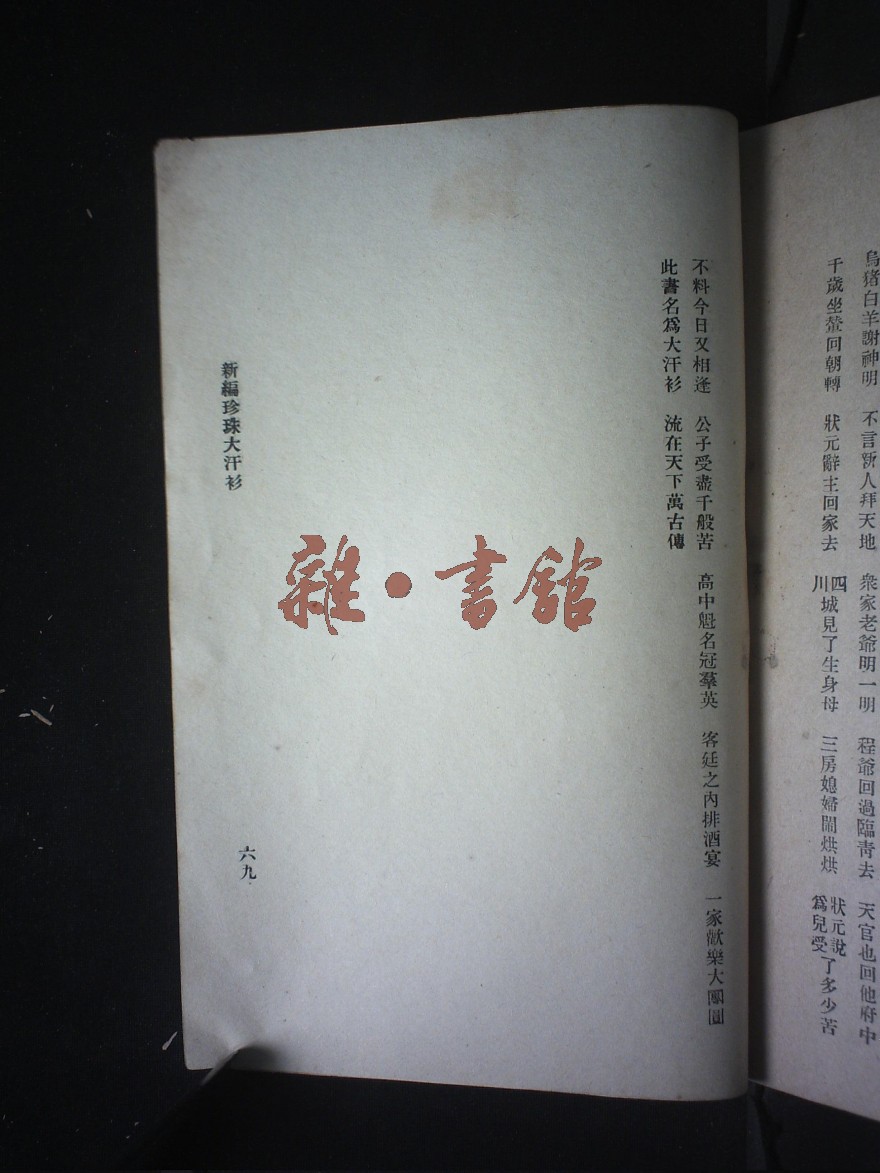 烏猪白羊謝神明　不言新人拜天地　衆家老爺明一明　程爺回過臨青去　天官也回他府中
千歲坐輦回朝轉　狀元辭主回家去　四川城見了生身母　三房媳婦鬧烘烘　狀元說爲兒受了多少苦
不料今日又相逢　公子受盡千般苦　高中魁名冠羣英　客廷之內排酒宴　一家歡樂大團圓
此書名爲大汗衫　流在天下萬古傳
新編珍珠大汗衫
六九
雜·書館